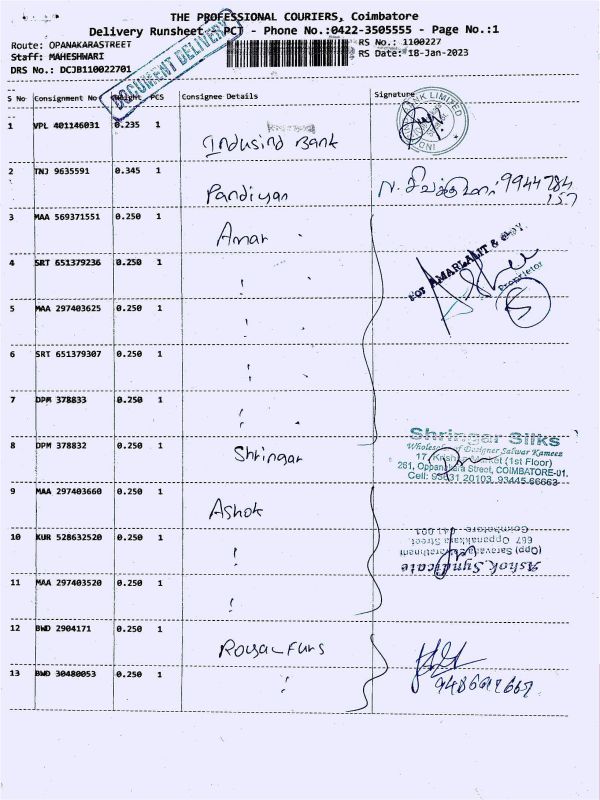 THE PROFESSIONAL COURIERS, Coimbatore
Delivery Runsheet - PCT - Phone No.:0422-3505555 - Page No.:1
Route: OPANAKARASTREET
RS No.: 1100227
Staff: MAHESHWARI
RS Date: 18-Jan-2023
DRS No.: DCJB110022701
DOCUMENT DELIVERY
S No Consignment No Weight PCS Consignee Details Signature
1 VPL 401146031 0.235 1 Indusind Bank
BANK LIMITED
2 TNJ 9635591 0.345 1 Pandiyan 9944784
157
3 MAA 569371551 0.250 1 Amar
For AMARLALIT & COY.
Proprietor
4 SRT 651379236 0.250 1 "
5 MAA 297403625 0.250 1 "
6 SRT 651379307 0.250 1 "
7 DPM 378833 0.250 1 "
8 DPM 378832 0.250 1 Shringar
Shringar Silks
Wholesale of Designer Salwar Kameez
17, Krishna Market (1st Floor)
261, Oppanakara Street, COIMBATORE-01.
Cell: 93631 20103, 93445 66663
9 MAA 297403660 0.250 1 Ashok
10 KUR 528632520 0.250 1 "
Ashok Syndicate
667 Oppanakkara Street
Coimbatore 641 001
11 MAA 297403520 0.250 1 "
12 BWD 2904171 0.250 1 Royal Furs
13 BWD 30480053 0.250 1 "